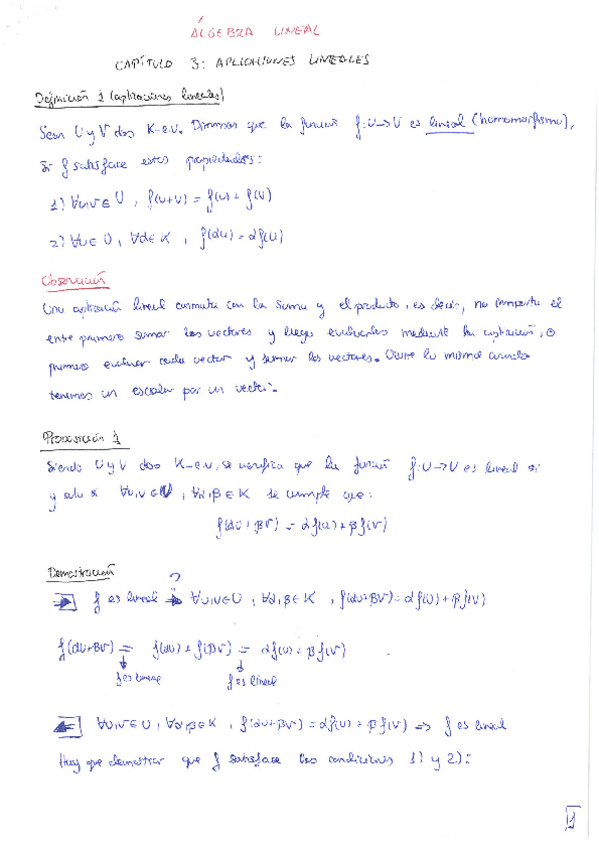 ÁLGEBRA LINEAL
CAPÍTULO 3: APLICACIONES LINEALES
Definición 1 (aplicaciones lineales)
Sean U y V dos K-e.v. Diremos que la función f: U→V es lineal (homomorfismo),
si f satisface estas propiedades:
1) ∀u,v ∈ U, f(u+v) = f(u) + f(v)
2) ∀u ∈ U, ∀α ∈ K, f(αu) = αf(u)
Observación
Una aplicación lineal conmuta con la suma y el producto, es decir, no importa el
entre primero sumar los vectores y luego evaluarlos mediante la aplicación, o
primero evaluar cada vector y sumar los vectores. Ocurre lo mismo cuando
tenemos un escalar por un vector.
Proposición 1
Siendo U y V dos K-e.v, se verifica que la función f: U→V es lineal si
y solo si ∀u,v ∈ U, ∀α,β ∈ K se cumple que:
f(αu+βv) = αf(u) + βf(v)
Demostración
?
⇒ f es lineal ⇒ ∀u,v ∈ U, ∀α,β ∈ K, f(αu+βv) = αf(u) + βf(v)
f(αu+βv) = f(αu) + f(βv) = αf(u) + βf(v)
f es lineal f es lineal
⇐ ∀u,v ∈ U, ∀α,β ∈ K, f(αu+βv) = αf(u) + βf(v) ⇒ f es lineal
Hay que demostrar que f satisface las condiciones 1) y 2):
1